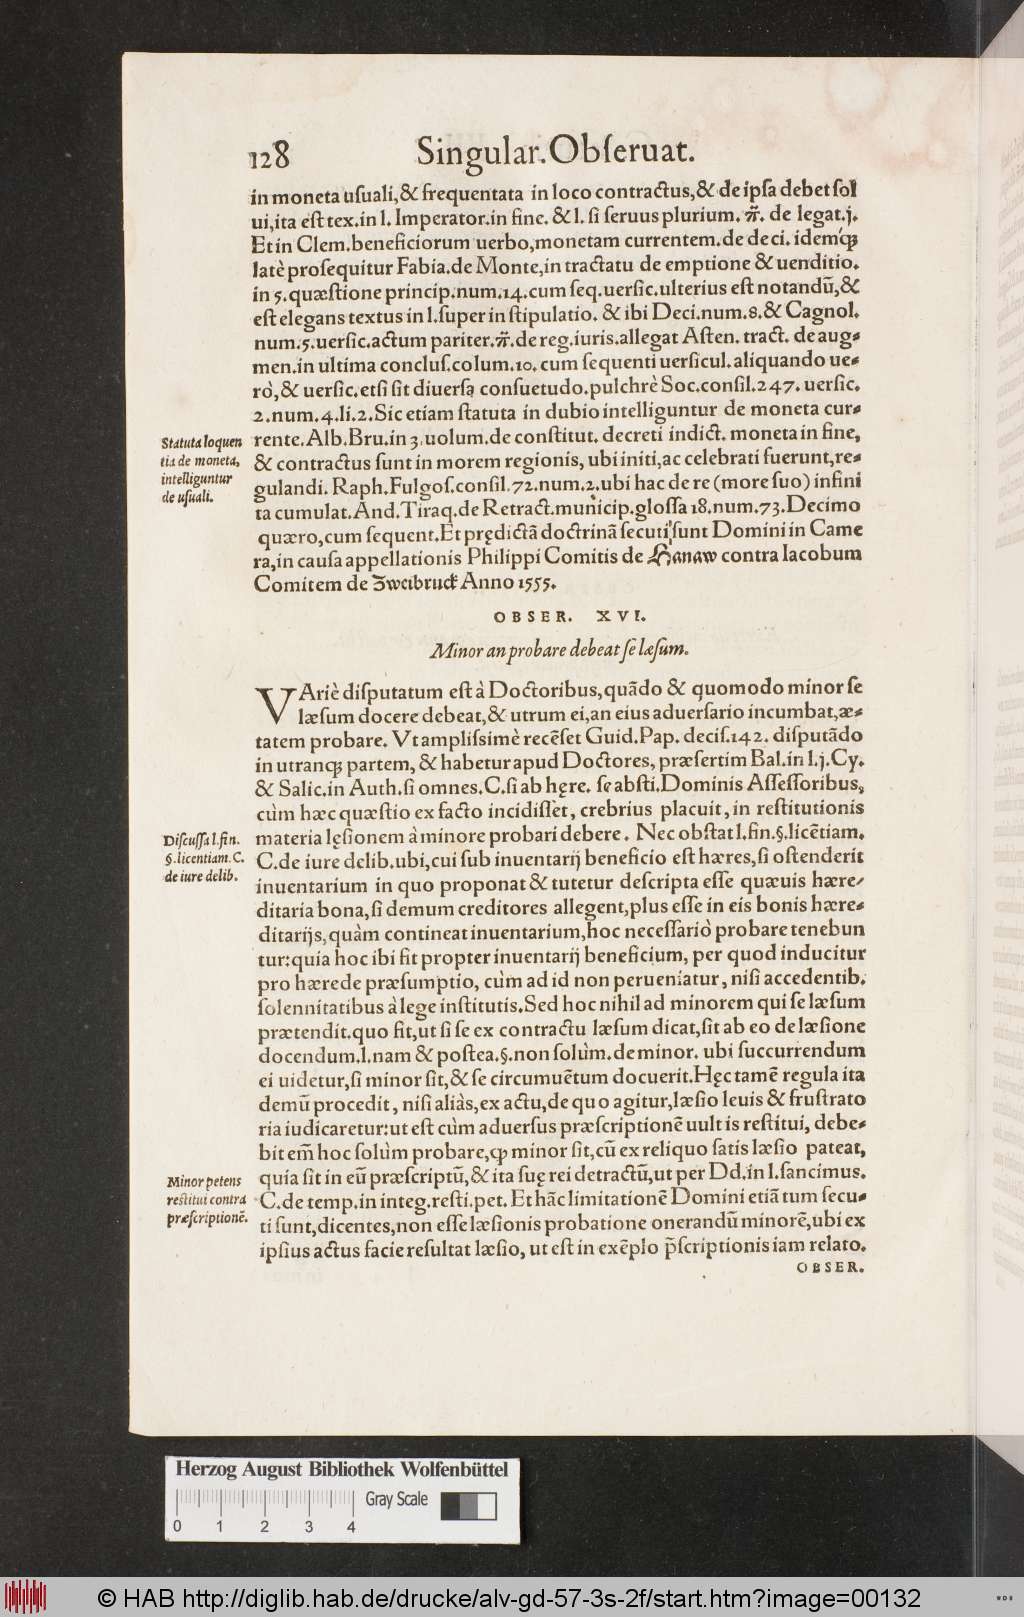 128 Singular. Obſeruat.
in moneta uſuali, & frequentata in loco contractus, & de ipſa debet ſol
ui, ita eſt tex. in l. Imperator. in fine. & l. ſi ſeruus plurium. ff. de legat. j.
Et in Clem. beneficiorum uerbo, monetam currentem. de deci. idemq́;
latè proſequitur Fabia. de Monte, in tractatu de emptione & uenditio.
in 5. quæſtione princip. num. 14. cum ſeq. uerſic. ulterius eſt notandũ, &
eſt elegans textus in l. ſuper in ſtipulatio. & ibi Deci. num. 8. & Cagnol.
num. 5. uerſic. actum pariter. ff. de reg. iuris. allegat Aſten. tract. de aug⸗
men. in ultima concluſ. colum. 10. cum ſequenti uerſicul. aliquando ue⸗
rò, & uerſic. etſi ſit diuerſa conſuetudo. pulchrè Soc. conſil. 247. uerſic.
2. num. 4. li. 2. Sic etiam ſtatuta in dubio intelliguntur de moneta cur⸗
rente. Alb. Bru. in 3. uolum. de conſtitut. decreti indict. moneta in fine,
& contractus ſunt in morem regionis, ubi initi, ac celebrati fuerunt, re⸗
gulandi. Raph. Fulgoſ. conſil. 72. num. 2. ubi hac de re (more ſuo) infini
ta cumulat. And. Tiraq. de Retract. municip. gloſſa 18. num. 73. Decimo
quæro, cum ſequent. Et prędictã doctrinã ſecuti ſunt Domini in Came
ra, in cauſa appellationis Philippi Comitis de Hanaw contra Iacobum
Comitem de Zweibruck Anno 1555.
Statuta loquen
tia de moneta,
intelliguntur
de uſuali.
OBSER. XVI.
Minor an probare debeat ſe læſum.
VAriè diſputatum eſt à Doctoribus, quãdo & quomodo minor ſe
læſum docere debeat, & utrum ei, an eius aduerſario incumbat, æ⸗
tatem probare. Vt ampliſsimè recẽſet Guid. Pap. deciſ. 142. diſputãdo
in utranq; partem, & habetur apud Doctores, præſertim Bal. in l. j. Cy.
& Salic. in Auth. ſi omnes. C. ſi ab hęre. ſe abſti. Dominis Aſſeſſoribus,
cùm hæc quæſtio ex facto incidiſſet, crebrius placuit, in reſtitutionis
materia lęſionem à minore probari debere. Nec obſtat l. fin. §. licẽtiam.
C. de iure delib. ubi, cui ſub inuentarij beneficio eſt hæres, ſi oſtenderit
inuentarium in quo proponat & tutetur deſcripta eſſe quæuis hære⸗
ditaria bona, ſi demum creditores allegent, plus eſſe in eis bonis hære⸗
ditarijs, quàm contineat inuentarium, hoc neceſſariò probare tenebun
tur: quia hoc ibi fit propter inuentarij beneficium, per quod inducitur
pro hærede præſumptio, cùm ad id non perueniatur, niſi accedentib.
ſolennitatibus à lege inſtitutis. Sed hoc nihil ad minorem qui ſe læſum
prætendit. quo fit, ut ſi ſe ex contractu læſum dicat, ſit ab eo de læſione
docendum. l. nam & poſtea. §. non ſolùm. de minor. ubi ſuccurrendum
ei uidetur, ſi minor ſit, & ſe circumuẽtum docuerit. Hęc tamẽ regula ita
demũ procedit, niſi aliàs, ex actu, de quo agitur, læſio leuis & fruſtrato
ria iudicaretur: ut eſt cùm aduerſus præſcriptionẽ uult is reſtitui, debe⸗
bit em̃ hoc ſolùm probare, ꝙ minor ſit, cũ ex reliquo ſatis læſio pateat,
quia ſit in eũ præſcriptũ, & ita ſuę rei detractũ, ut per Dd. in l. ſancimus.
C. de temp. in integ. reſti. pet. Et hãc limitationẽ Domini etiã tum ſecu⸗
ti ſunt, dicentes, non eſſe læſionis probatione onerandũ minorẽ, ubi ex
ipſius actus facie reſultat læſio, ut eſt in exẽplo p̃ſcriptionis iam relato.
Diſcuſſa l. fin.
§. licentiam. C.
de iure delib.
Minor petens
reſtitui contra
præſcriptionẽ.
OBSER.
Herzog August Bibliothek Wolfenbüttel
Gray Scale
0 1 2 3 4
© HAB http://diglib.hab.de/drucke/alv-gd-57-3s-2f/start.htm?image=00132